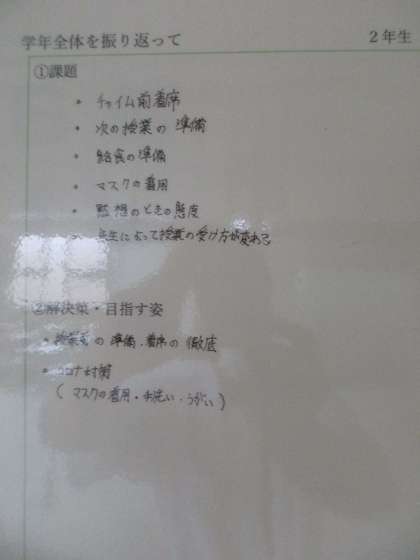 学年全体を振り返って 2年生
①課題
・ チャイム前着席
・ 次の授業の準備
・ 給食の準備
・ マスクの着用
・ 黙想のときの態度
・ 先生によって授業の受け方が変わる
②解決策・目指す姿
・ 授業の準備・着席の徹底
・ コロナ対策
(マスクの着用・手洗い・うがい)